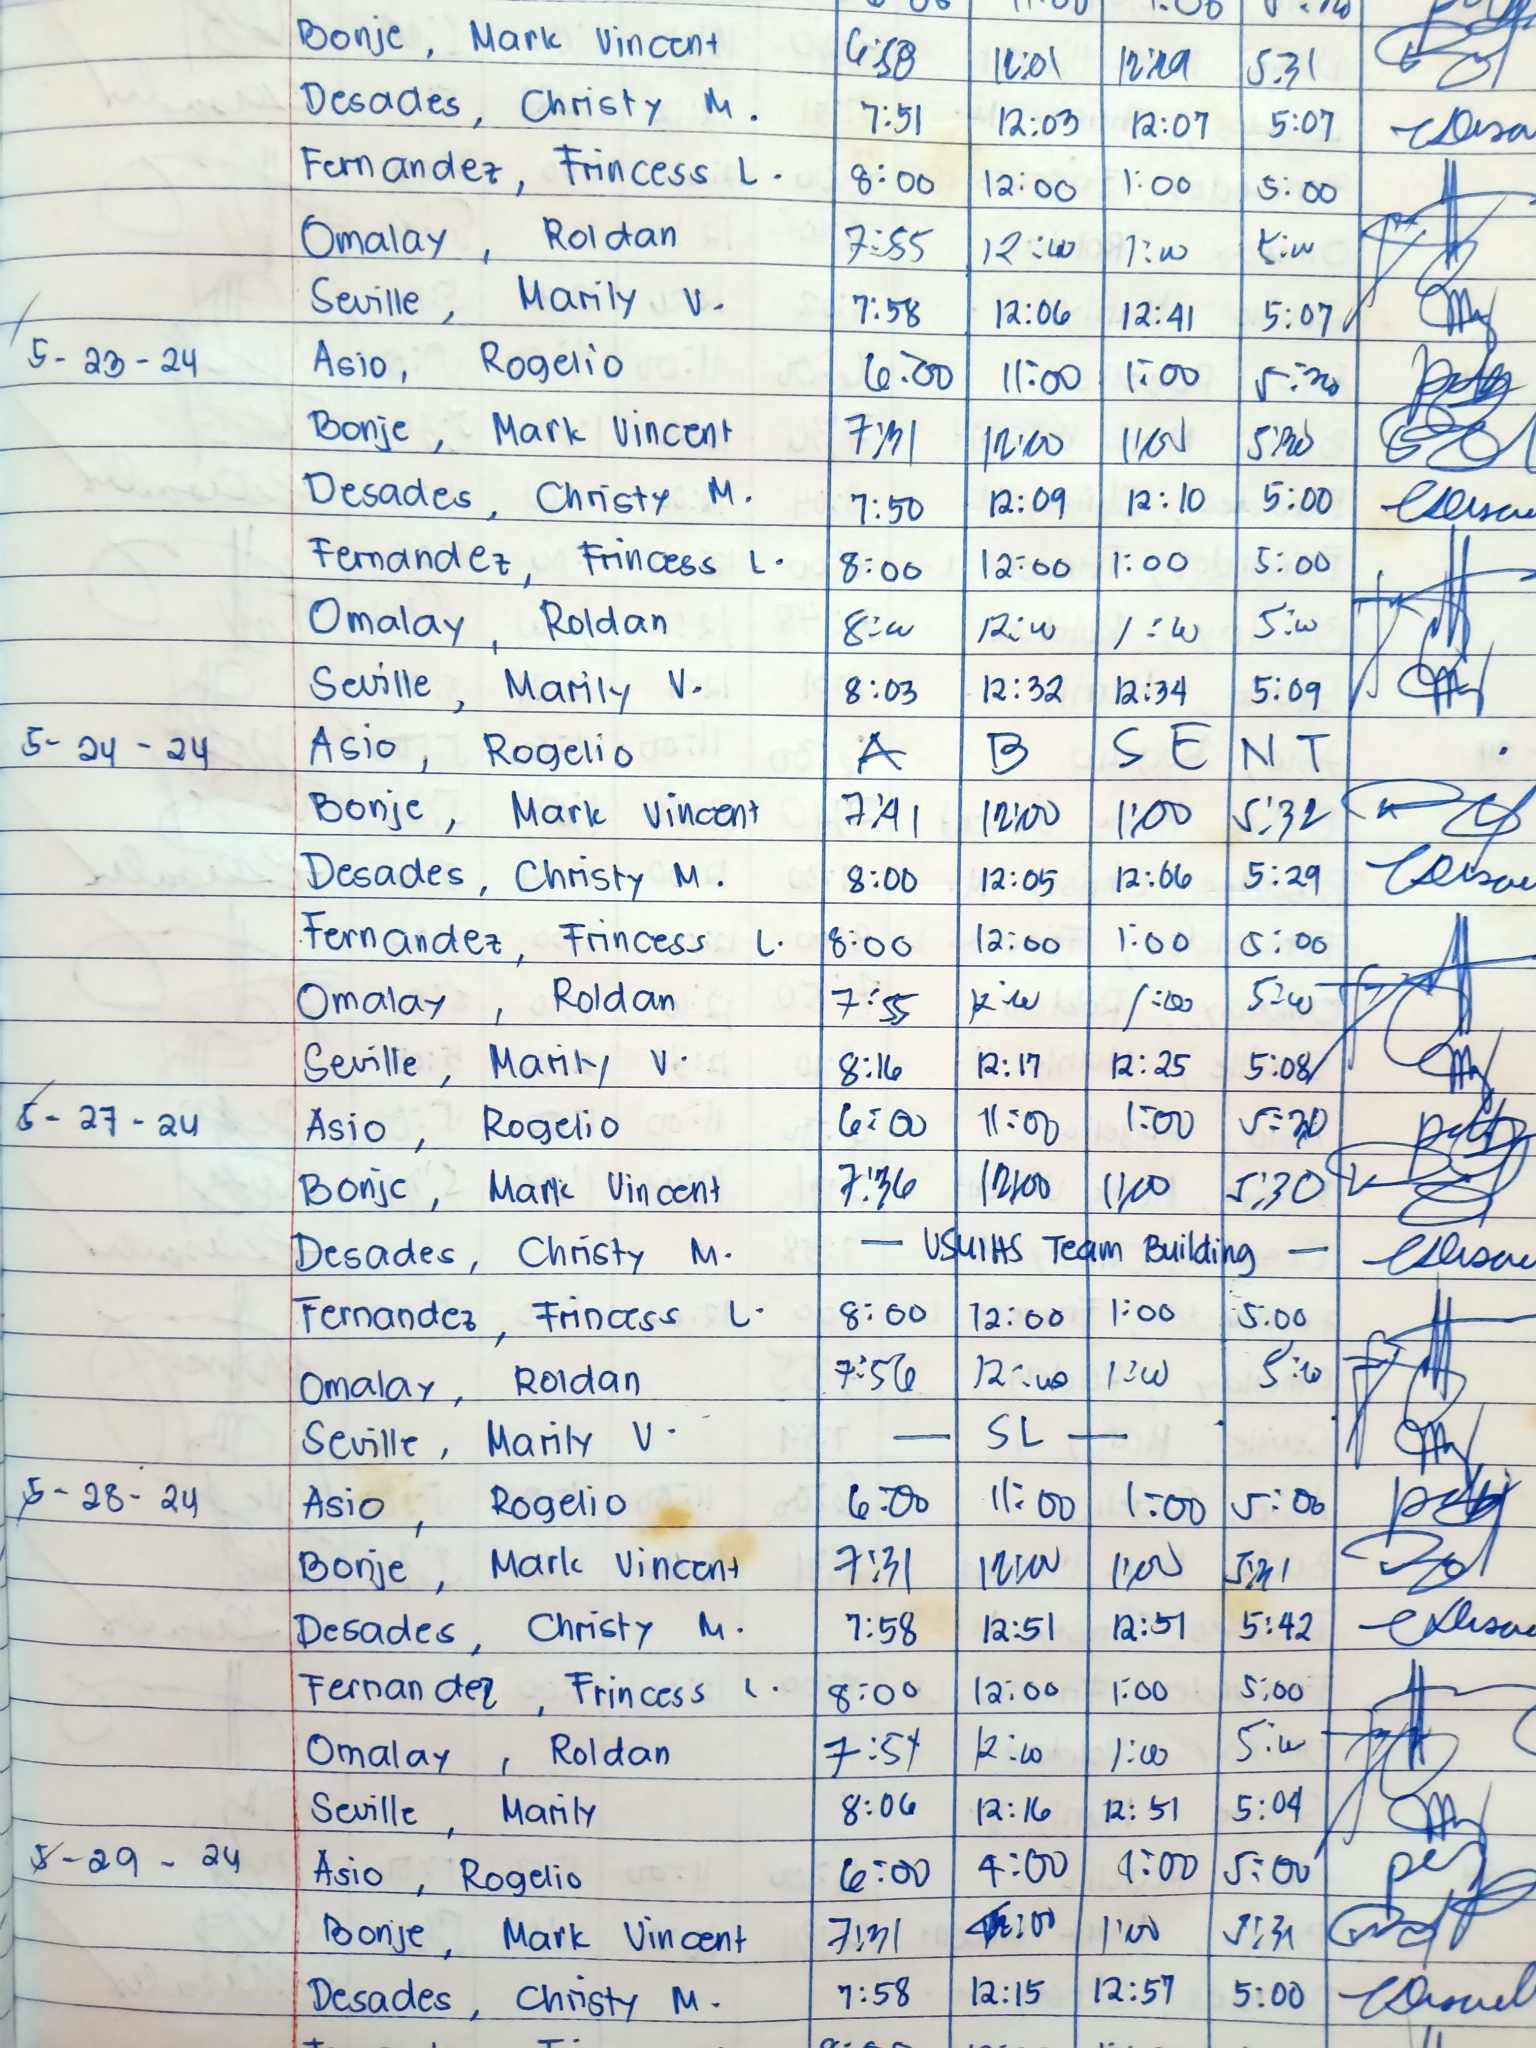 Bonje, Mark Vincent 6:58 12:01 12:29 5:31
Desades, Christy M. 7:51 12:03 12:07 5:07
Fernandez, Frincess L. 8:00 12:00 1:00 5:00
Omalay, Roldan 7:55 12:00 1:00 5:00
Seville, Marily V. 7:58 12:06 12:41 5:07
5-23-24 Asio, Rogelio 6:00 11:00 1:00
Bonje, Mark Vincent 7:31 12:00 1:00 5:30
Desades, Christy M. 7:50 12:09 12:10 5:00
Fernandez, Frincess L. 8:00 12:00 1:00 5:00
Omalay, Roldan 8:00 12:00 1:00 5:00
Seville, Marily V. 8:03 12:32 12:34 5:09
5-24-24 Asio, Rogelio A B S E N T
Bonje, Mark Vincent 7:41 12:00 1:00 5:32
Desades, Christy M. 8:00 12:05 12:06 5:29
Fernandez, Frincess L. 8:00 12:00 1:00 5:00
Omalay, Roldan 7:55 12:00 1:00 5:00
Seville, Marily V. 8:16 12:17 12:25 5:08
5-27-24 Asio, Rogelio 6:00 11:00 1:00
Bonje, Mark Vincent 7:36 12:00 1:00 5:30
Desades, Christy M. — USMIHS Team Building —
Fernandez, Frincess L. 8:00 12:00 1:00 5:00
Omalay, Roldan 7:56 12:00 1:00 5:00
Seville, Marily V. — SL —
5-28-24 Asio, Rogelio 6:00 11:00 1:00 5:00
Bonje, Mark Vincent 7:31 12:00 1:00 5:31
Desades, Christy M. 7:58 12:51 12:51 5:42
Fernandez, Frincess L. 8:00 12:00 1:00 5:00
Omalay, Roldan 12:00 1:00 5:00
Seville, Marily 8:06 12:16 12:51 5:04
5-29-24 Asio, Rogelio 6:00 5:00
Bonje, Mark Vincent 7:31 12:00 1:00 5:31
Desades, Christy M. 7:58 12:15 12:57 5:00